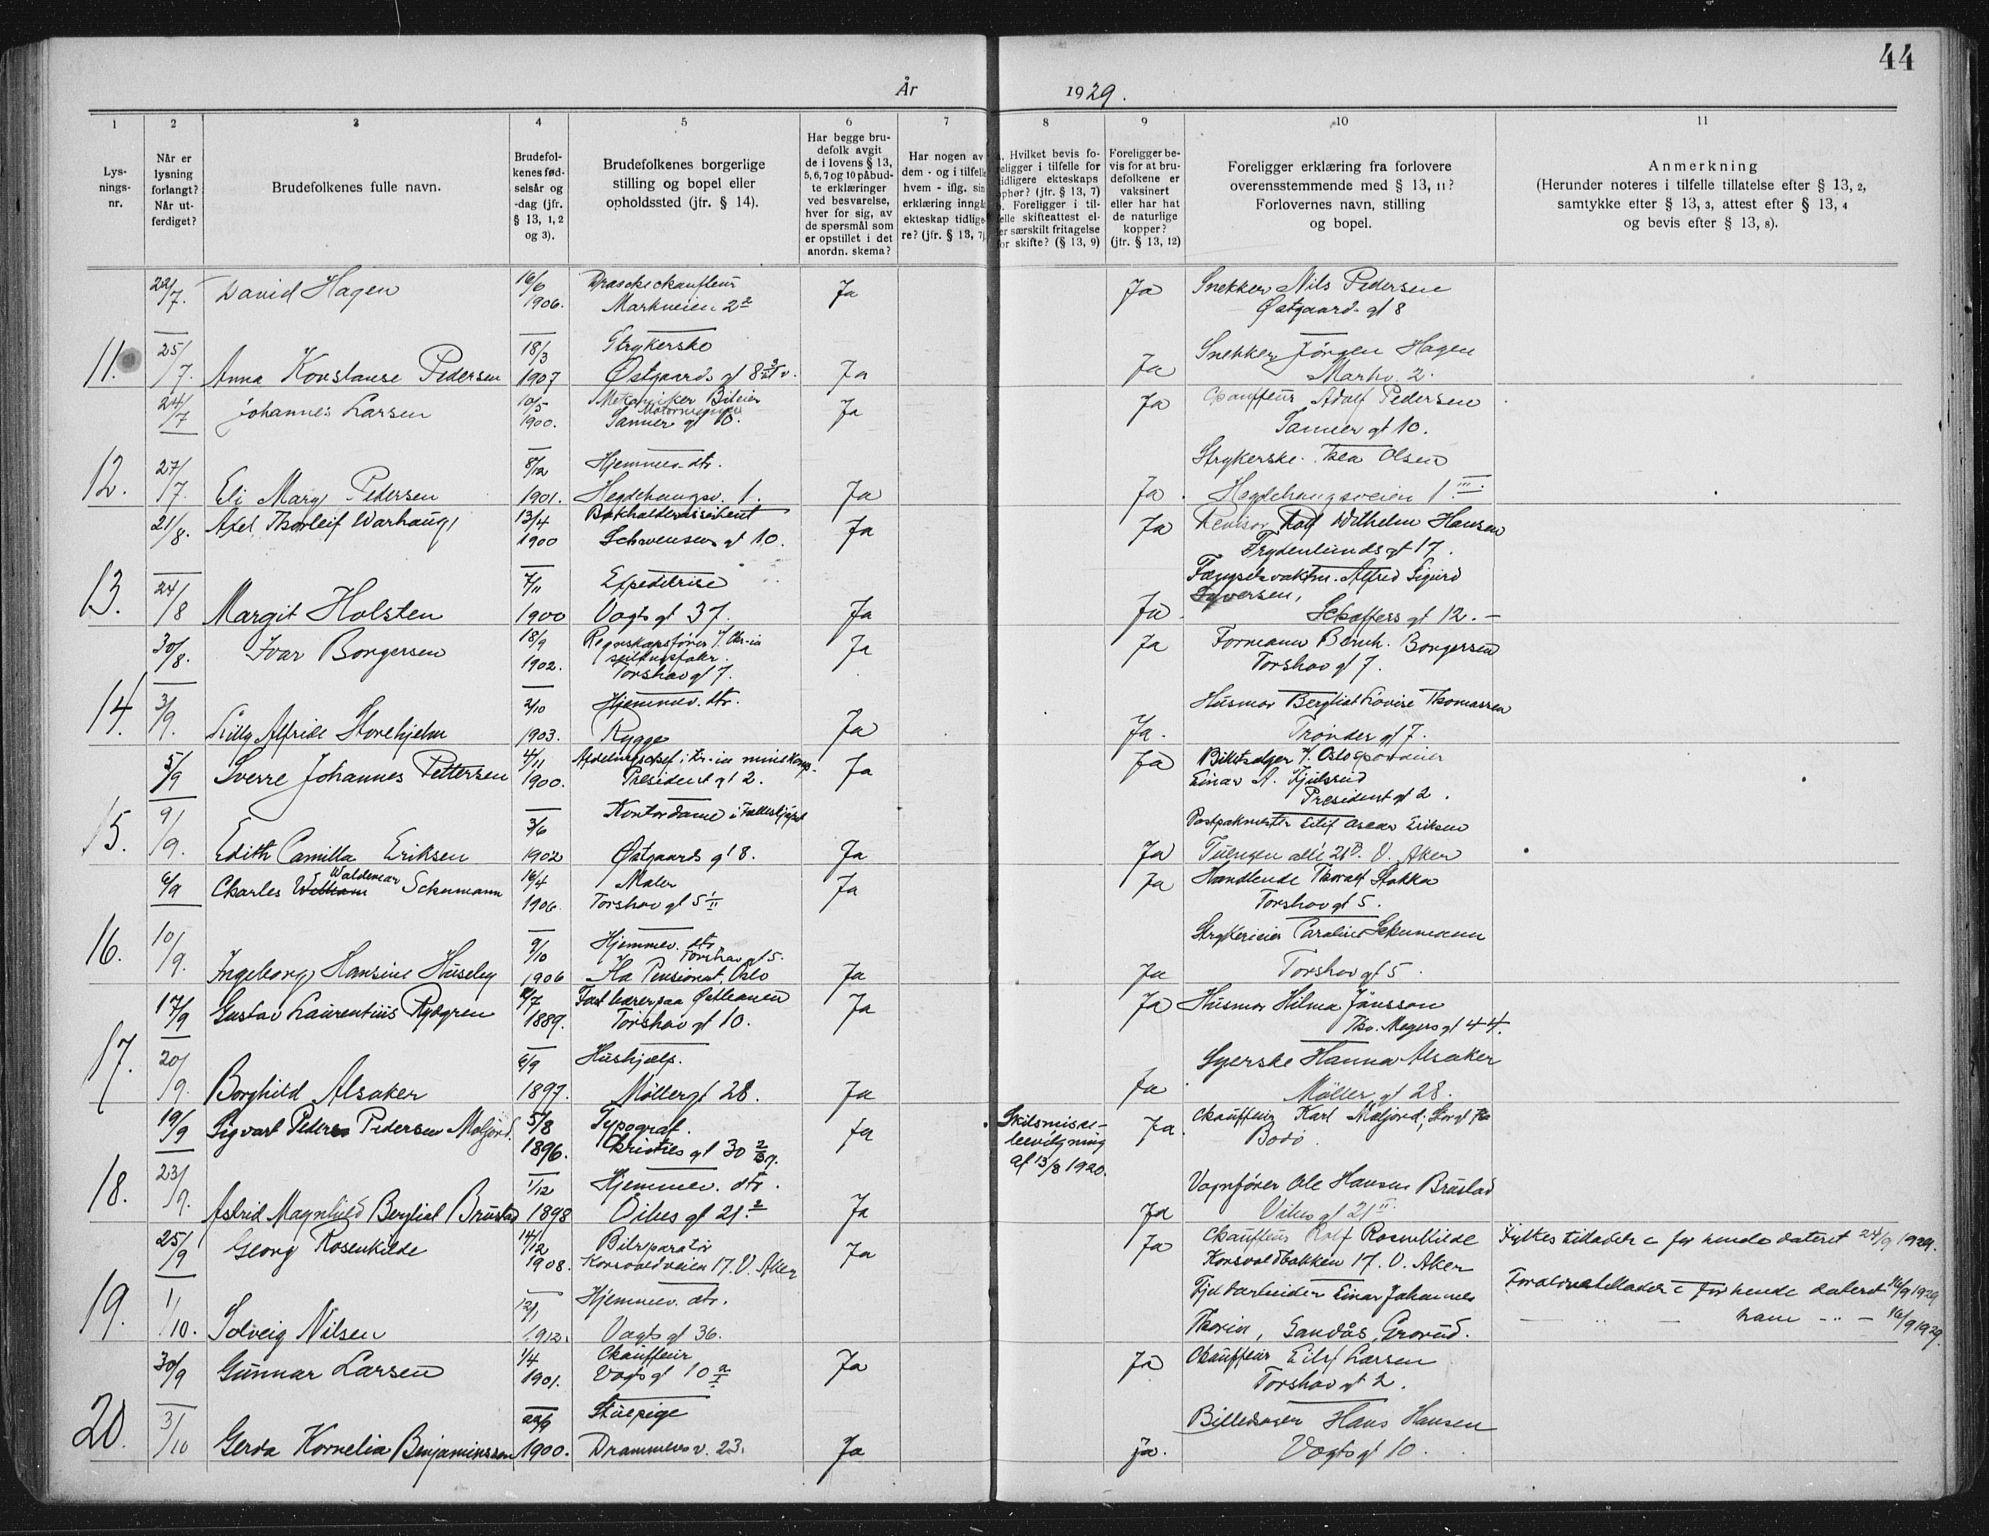 44
År 1929.
1 2 3 4 5 6 7 8 9 10 11
Lys-
nings-
nr.
Når er
lysning
forlangt?
Når ut-
ferdiget?
Brudefolkenes fulle navn.
Brudefol-
kenes fød-
selsår og
-dag (jfr.
§ 13, 1, 2
og 3).
Brudefolkenes borgerlige
stilling og bopel eller
opholdssted (jfr. § 14).
Har begge bru-
defolk avgit
de i lovens § 13,
5, 6, 7 og 10 påbud-
te erklæringer
ved besvarelse,
hver for sig, av
de spørsmål som
er opstillet i det
anordn. skema?
Har nogen av
dem - og i tilfelle
hvem - iflg. sin
erklæring inngå
ekteskap tidlige-
re? (jfr. § 13, 7)
a. Hvilket bevis fo-
religger i tilfelle for
tidligere ekteskaps
ophør? (jfr. § 13, 7)
b. Foreligger i til-
felle skifteattest el-
ler særskilt fritagelse
for skifte? (§ 13, 9)
Foreligger be-
vis for at bru-
defolkene er
vaksinert
eller har hat
de naturlige
kopper?
(jfr. § 13, 12)
Foreligger erklæring fra forlovere
overensstemmende med § 13, 11?
Forlovernes navn, stilling
og bopel.
Anmerkning
(Herunder noteres i tilfelle tillatelse efter § 13, 2,
samtykke efter § 13, 3, attest efter § 13, 4
og bevis efter § 13, 8).
22/7. David Hagen 16/6 1906. Droschechauffeur Ja Ja Snekker Nils Pedersen
Markveien 2 Østgaards gt 8
11. 25/7. Anna Konstanse Pedersen 18/3 1907 Strykerske Ja Ja Snekker Jørgen Hagen
Østgaards gt 8 Markv. 2.
24/7 Johannes Larsen 10/5 1900. Mekaniker Ja Ja Chauffeur Adolf Pedersen
Sanner gt 10. Sanner gt 10.
12. 27/7. Eli Mary Pedersen 8/12 1901. Hjemmev. dtr. Ja Ja Strykerske Thea Olsen
Hegdehaugsv. 1. Hegdehaugsveien 1 III
21/8. Axel Thorleif Warhaug 13/4 1900 Bokholderassistent Ja Ja Revisor Rolf Wilhelm Hansen
Schwensens gt 10. Frydenlunds gt 17.
13. 24/8 Margit Holsten 7/11 1900 Expeditrise Ja Ja Fængselsvaktm. Alfred Sigurd
Syversen,
Vogts gt 37. Schaffers gt 12. –
30/8. Ivar Borgersen 18/9 1902. Regnskapsfører Ja Ja Formann Bernh. Borgersen
Torshov gt 7. Torshov gt 7.
14. 3/9. Lilly Alfride Storehjelm 2/10 1903. Hjemmev. dtr. Ja Ja. Husmor Bergliot Lovise Thomassen
Rygge Trønder gt 7.
5/9 Sverre Johannes Pettersen 4/11 1900. Ja Ja
President gt 2. Einar A. Kjelsrud
President gt 2.
15. 9/9. Edith Camilla Eriksen 3/6 1902 Kontordame i Ja Ja Postpakmester Eilif Oscar Eriksen
Østgaards gt 8. Tuengen allé 21 B. V. Aker
6/9 Charles Waldemar Schumann 16/4 1906. Maler Ja Ja Handlende Thoralf Stokka
Torshov gt 5 II Torshov gt 5.
16. 10/9. Ingeborg Hansine Huseby 9/10 1906 Hjemmev. dtr. Ja Ja Strykerieier Caroline Schumann
Torshov gt 5.
Ila Pensionat, Oslo Torshov gt 5.
17/9 Gustav Laurentius Rydgren /7 1889. Fast bærer paa Østbanen Ja Ja Husmor Hilma Jansson
Torshov gt 10. Thv. Meyers gt 44.
17. 20/9. Borghild Alsaker 6/9 1897. Hushjelp. Ja Ja Syerske Hanna Alsaker
Møllergt 28. Møller gt 28.
19/9 Sigvart Peder Pedersen Moljord. 5/8 1896. Typograf. Ja Skilsmisse-
bevilgning
af 13/8 1920. Ja. Chauffeur Karl Moljord, Storgt
Christies gt 30 Bodø.
18. 23/9. Astrid Magnhild Bergliot Brustad 1/12 1898 Hjemmev. dtr. Ja Ja Vognfører Ole Hansen Brustad
Vibes gt 21. Vibes gt 21 II
25/9 Georg Rosenkilde 14/12 1908. Bilreparatør Ja Ja Chauffeur Rolf Rosenkilde Fylkes tilladelse for hende dateret 24/9 1929.
Korsvoldveien 17. V. Aker Korsvoldbakken 17. V. Aker
19. 1/10. Solveig Nilsen 12/1 1912. Hjemmev. dtr. Einar Johannes Foreldretilladelse for hende dateret 16/9 1929
Vogts gt 36. Thorin, Sandås, Grorud. – " – ham – " – 16/9 1929.
30/9 Gunnar Larsen 1/4 1901. Chauffeur Ja Ja Chauffeur Eilif Larsen
Vogts gt 10 Torshov gt 2.
20. 3/10 Gerda Kornelia Benjaminsson 22/9 1900. Stuepige Ja Ja. Hans Hansen
Drammensv. 23. Vogts gt 10.